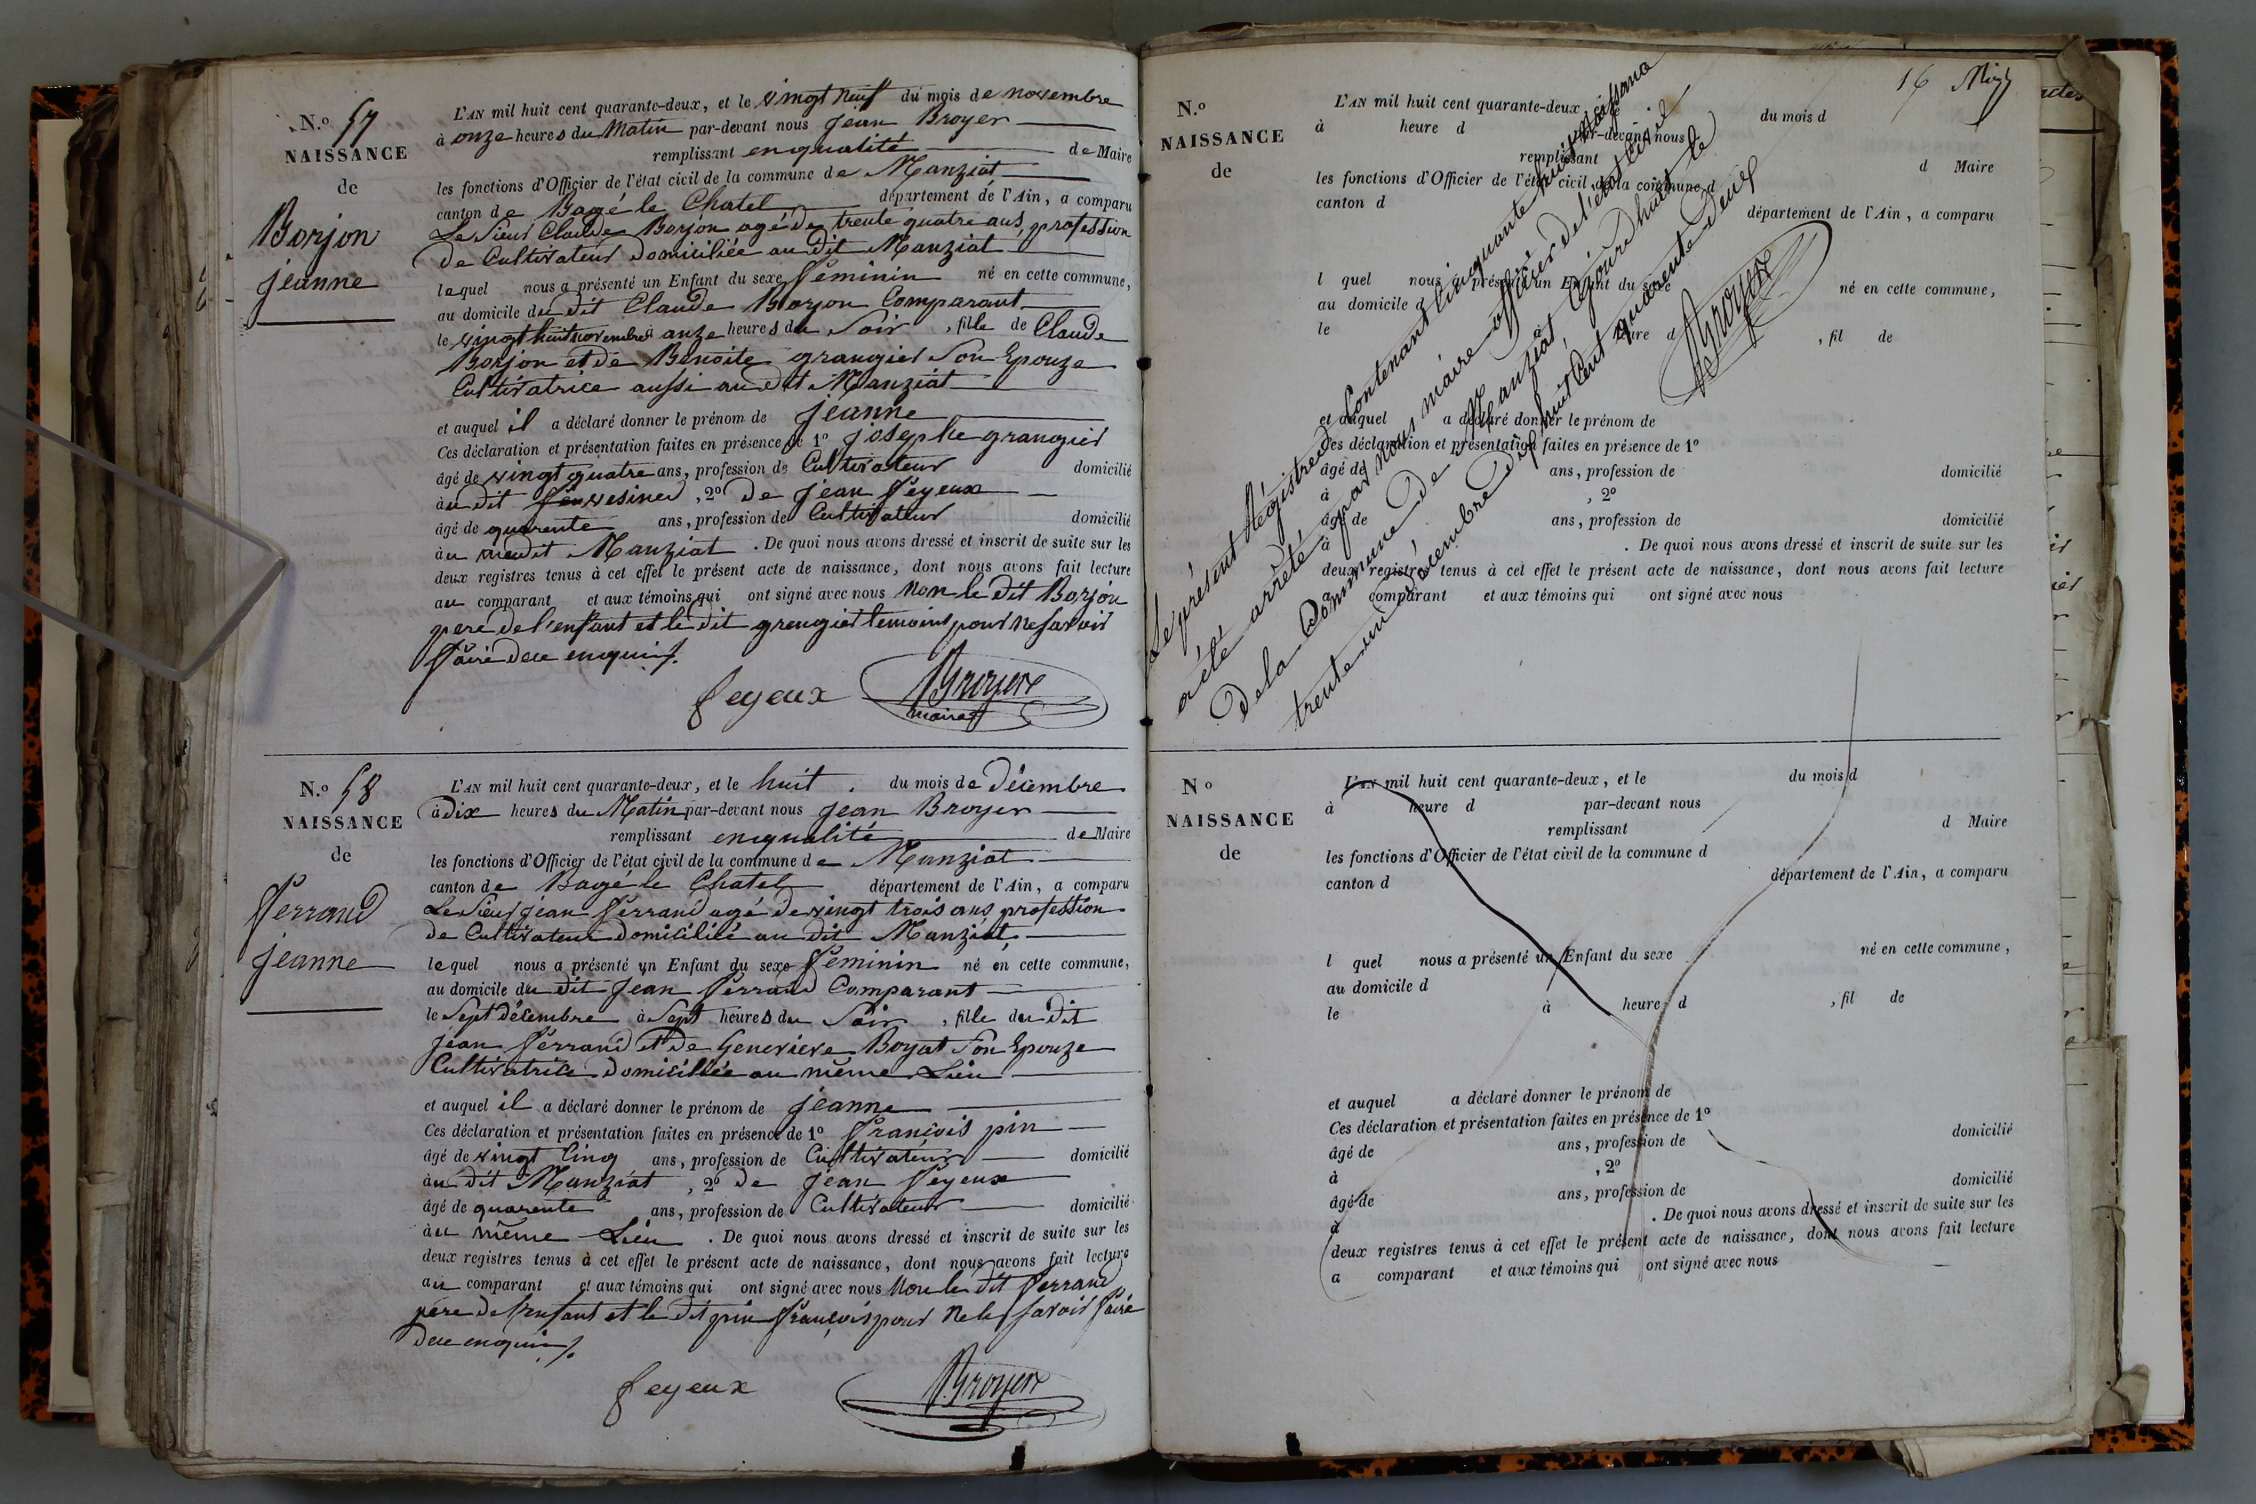 N.o 57
NAISSANCE
de
Borjon
jeanne
L'AN mil huit cent quarante-deux, et le vingt neuf du mois de novembre
à onze heures du Matin par-devant nous jean Broyer
remplissant en qualité de Maire
les fonctions d'Officier de l'état cicil de la commune de Manziat
canton de Bagé le Chatel département de l'Ain, a comparu
Le Sieur Claude Borjon agé de trente quatre ans, profession
de Cultivateur domiciliée au dit Manziat
lequel nous a présenté un Enfant du sexe féminin né en cette commune,
au domicile du dit Claude Borjon Comparant
le vingt huit novembre à onze heures du Soir, fille de Claude
Borjon et de Benoite grangier Son Epouze
Cultivatrice aussi au dit Manziat
et auquel il a déclaré donner le prénom de jeanne
Ces déclaration et présentation faites en présence de 1o josephe grangier
âgé de vingt quatre ans, profession de Cultivateur domicilié
àu dit , 2o de jean feyeux
âgé de quarente ans, profession de Cultivateur domicilié
àu Manziat . De quoi nous avons dressé et inscrit de suite sur les
deux registres tenus à cet effet le présent acte de naissance, dont nous avons fait lecture
au comparant et aux témoins qui ont signé avec nous Non le dit Borjon
pere de l'enfant et le dit grengier temoins pour ne savoir
faire de ce enquis
feyeux Broyer
maire
N.o 58
NAISSANCE
de
ferrand
jeanne
L'AN mil huit cent quarante-deux, et le huit . du mois de Décembre
à dix heures du Matin par-devant nous jean Broyer
remplissant en qualité de Maire
les fonctions d'Officier de l'état civil de la commune de Manziat
canton de Bagé le Chatel département de l'Ain, a comparu
Le Sieur jean ferrand agé de vingt trois ans, profession
de Cultivateur domicilié au dit Manziat
lequel nous a présenté un Enfant du sexe féminin né en cette commune,
au domicile du dit jean ferrand Comparant
le Sept décembre à Sept heures du Soir, fille du dit
jean ferrand et de Genevieve Boyat Son Epouze
Cultivatrice domiciliée au même Lieu
et auquel il a déclaré donner le prénom de jeanne
Ces déclaration et présentation faites en présence de 1o francois pin
âgé de vingt Cinq ans, profession de Cultivateur domicilié
àu dit Manziat , 2o de jean feyeux
âgé de quarente ans, profession de Cultivateur domicilié
àu même Lieu . De quoi nous avons dressé et inscrit de suite sur les
deux registres tenus à cet effet le présent acte de naissance, dont nous avons fait lecture
au comparant et aux témoins qui ont signé avec nous Non le dit ferrand
pere de l'enfant et le dit pin francois pour ne le savoir faire
de ce enquis
feyeux Broyer
16
N.o
NAISSANCE
de
L'AN mil huit cent quarante-deux, du mois d
à heure d par-devant nous
remplissant d Maire
les fonctions d'Officier de l'état civil de la commune d
canton d département de l'Ain, a comparu
l quel nous a présenté un Enfant du sexe né en cette commune,
au domicile d
le à heure d , fil de
et auquel a déclaré donner le prénom de
Ces déclaration et présentation faites en présence de 1o
âgé de ans, profession de domicilié
à , 2o
âgé de ans, profession de domicilié
à . De quoi nous avons dressé et inscrit de suite sur les
deux registres tenus à cet effet le présent acte de naissance, dont nous avons fait lecture
a comparant et aux témoins qui ont signé avec nous
Le présent Régistre Contenant Cinquante huit naissance
a été arrêté par nous maire officier de l'état civil
de la Commune de Manziat Ce jourd'huit le
trente un décembre dix huit Cent quarente deux
Broyer
No
NAISSANCE
de
L'AN mil huit cent quarante-deux, et le du mois d
à heure d par-devant nous
remplissant d Maire
les fonctions d'Officier de l'état civil de la commune d
canton d département de l'Ain, a comparu
l quel nous a présenté un Enfant du sexe né en cette commune,
au domicile d
le à heure d , fil de
et auquel a déclaré donner le prénom de
Ces déclaration et présentation faites en présence de 1o
âgé de ans, profession de domicilié
à , 2o
âgé de ans, profession de domicilié
à . De quoi nous avons dressé et inscrit de suite sur les
deux registres tenus à cet effet le présent acte de naissance, dont nous avons fait lecture
a comparant et aux témoins qui ont signé avec nous